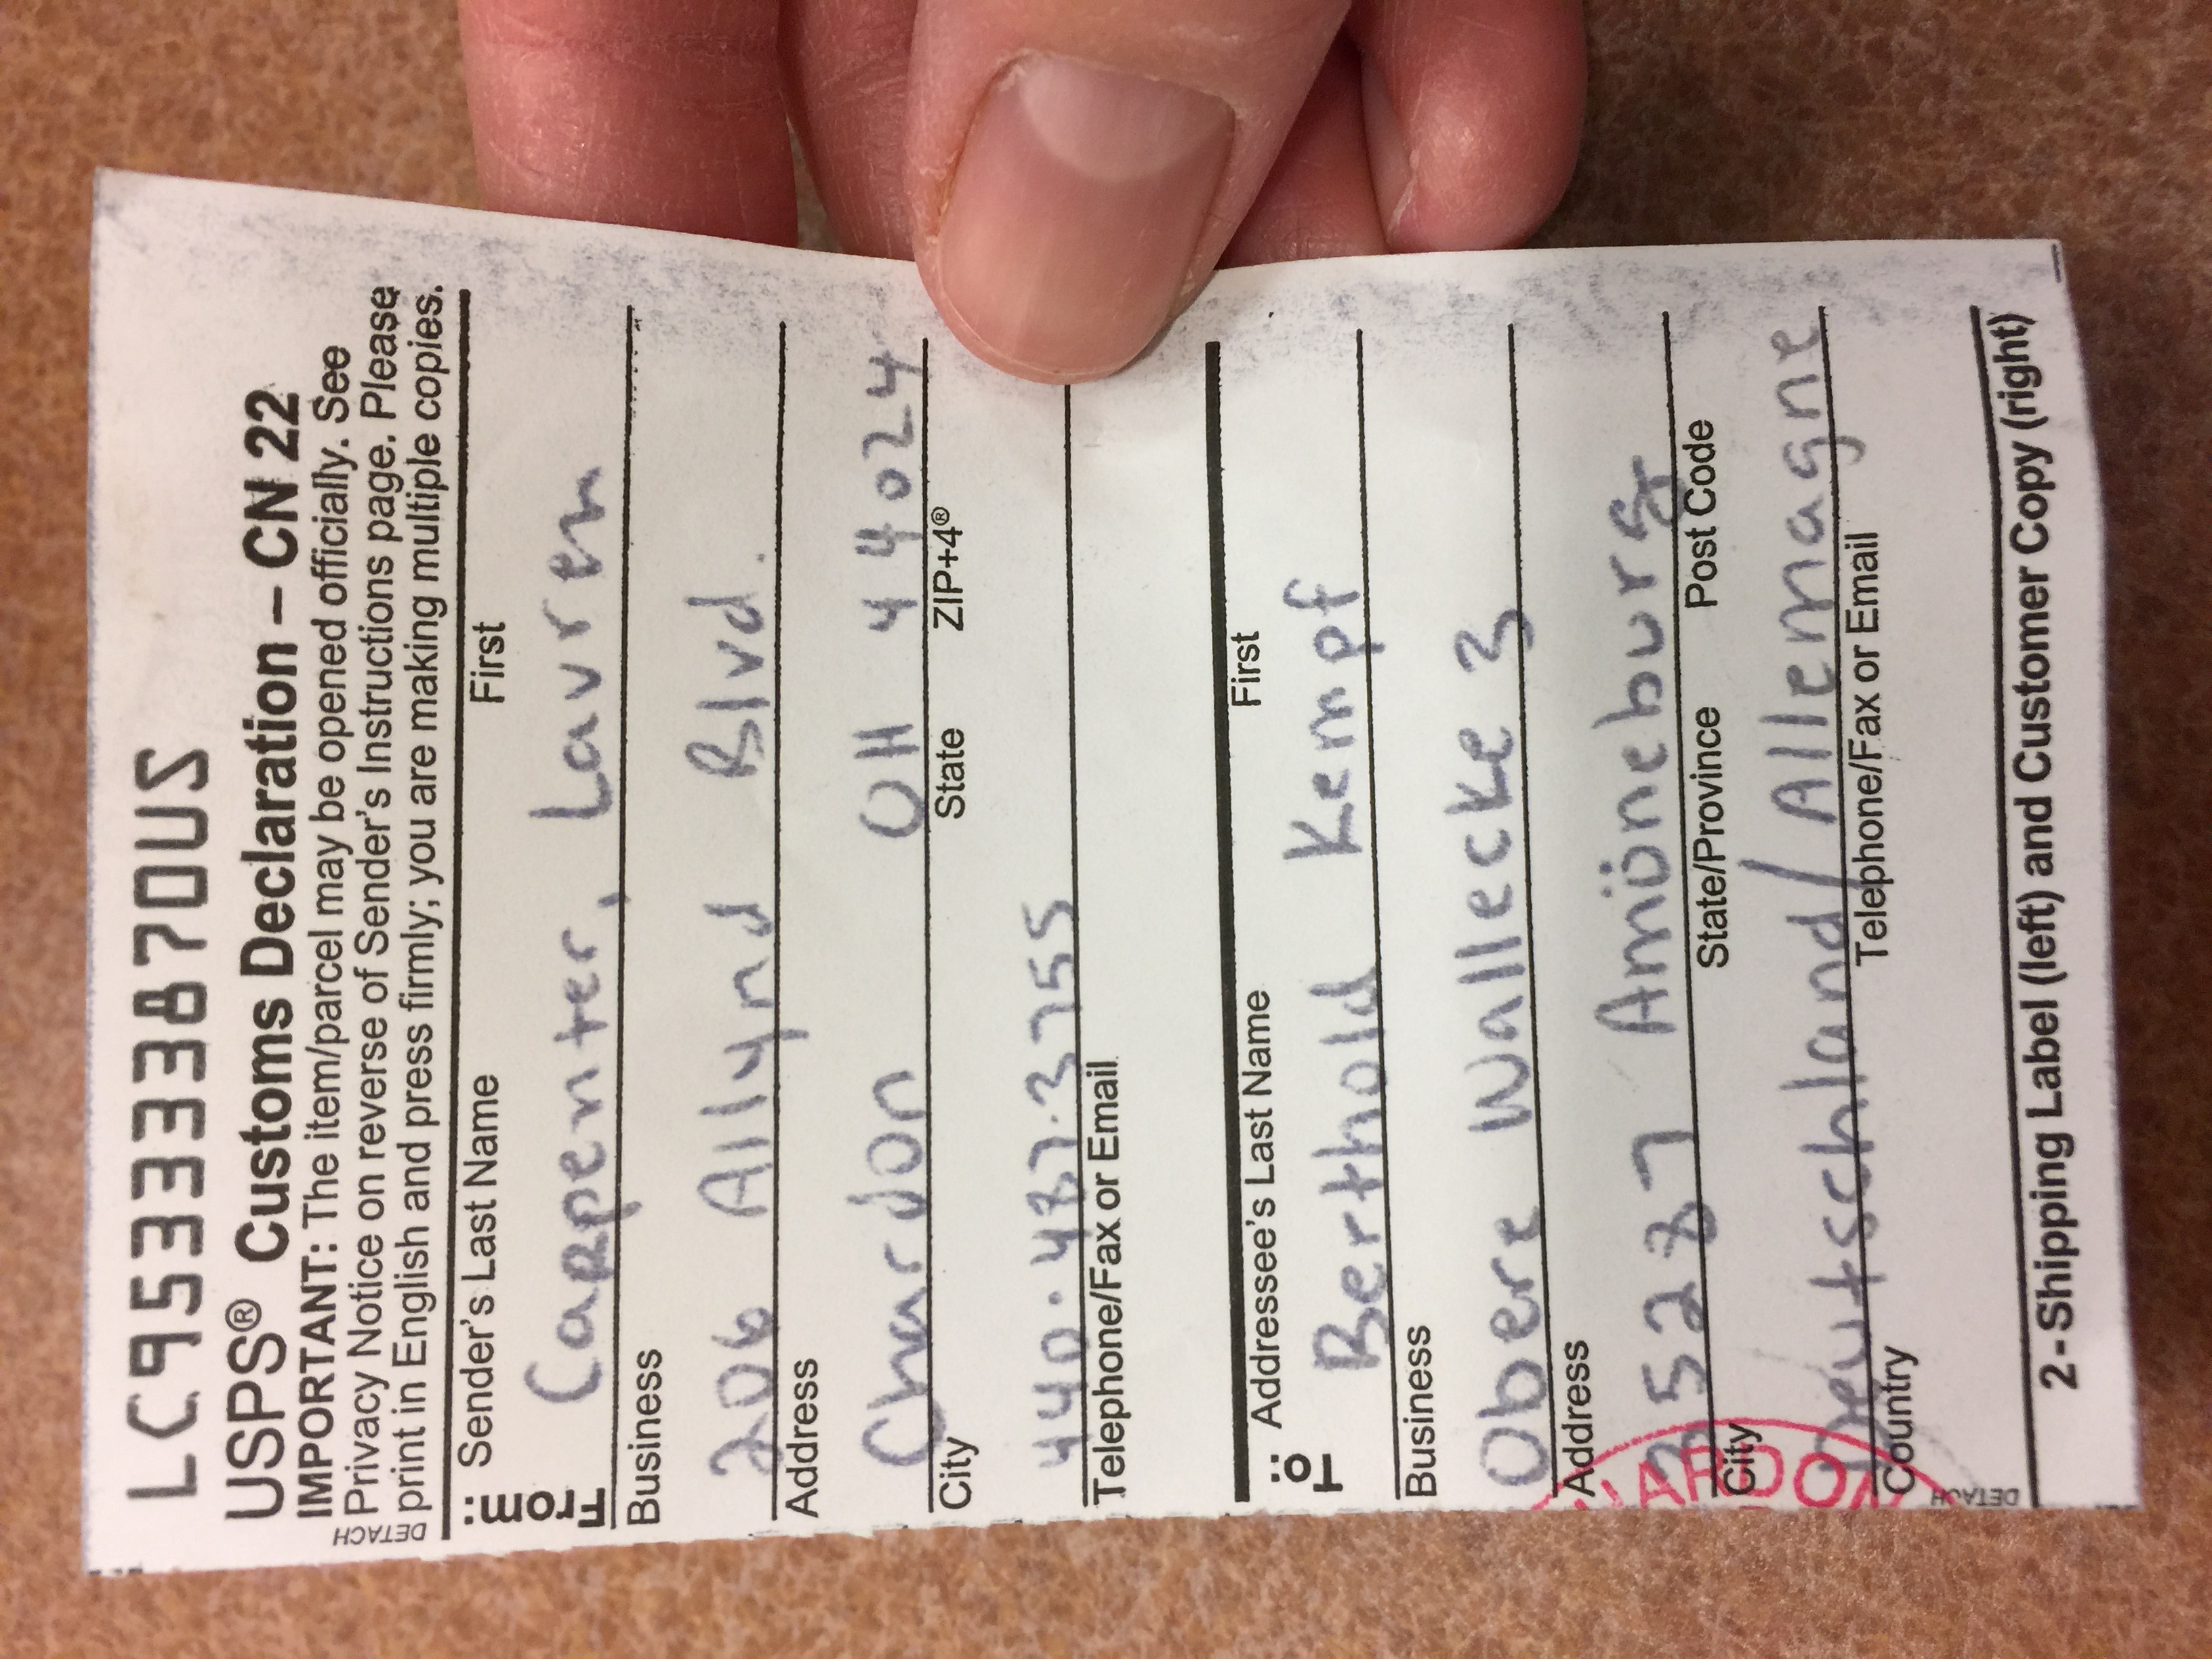 LC953333870US
USPS® Customs Declaration – CN 22
IMPORTANT: The item/parcel may be opened officially. See
Privacy Notice on reverse of Sender's Instructions page. Please
print in English and press firmly; you are making multiple copies.
DETACH
From:
Sender's Last Name First
Carpenter, Lauren
Business
206 Allynd Blvd.
Address
Chardon OH 44024
City State ZIP+4®
440·487·3755
Telephone/Fax or Email
To:
Addressee's Last Name First
Berthold Kempf
Business
Obere Wallecke 3
Address
35287 Amöneburg
City State/Province Post Code
Deutschland/Allemagne
Country Telephone/Fax or Email
DETACH
2-Shipping Label (left) and Customer Copy (right)